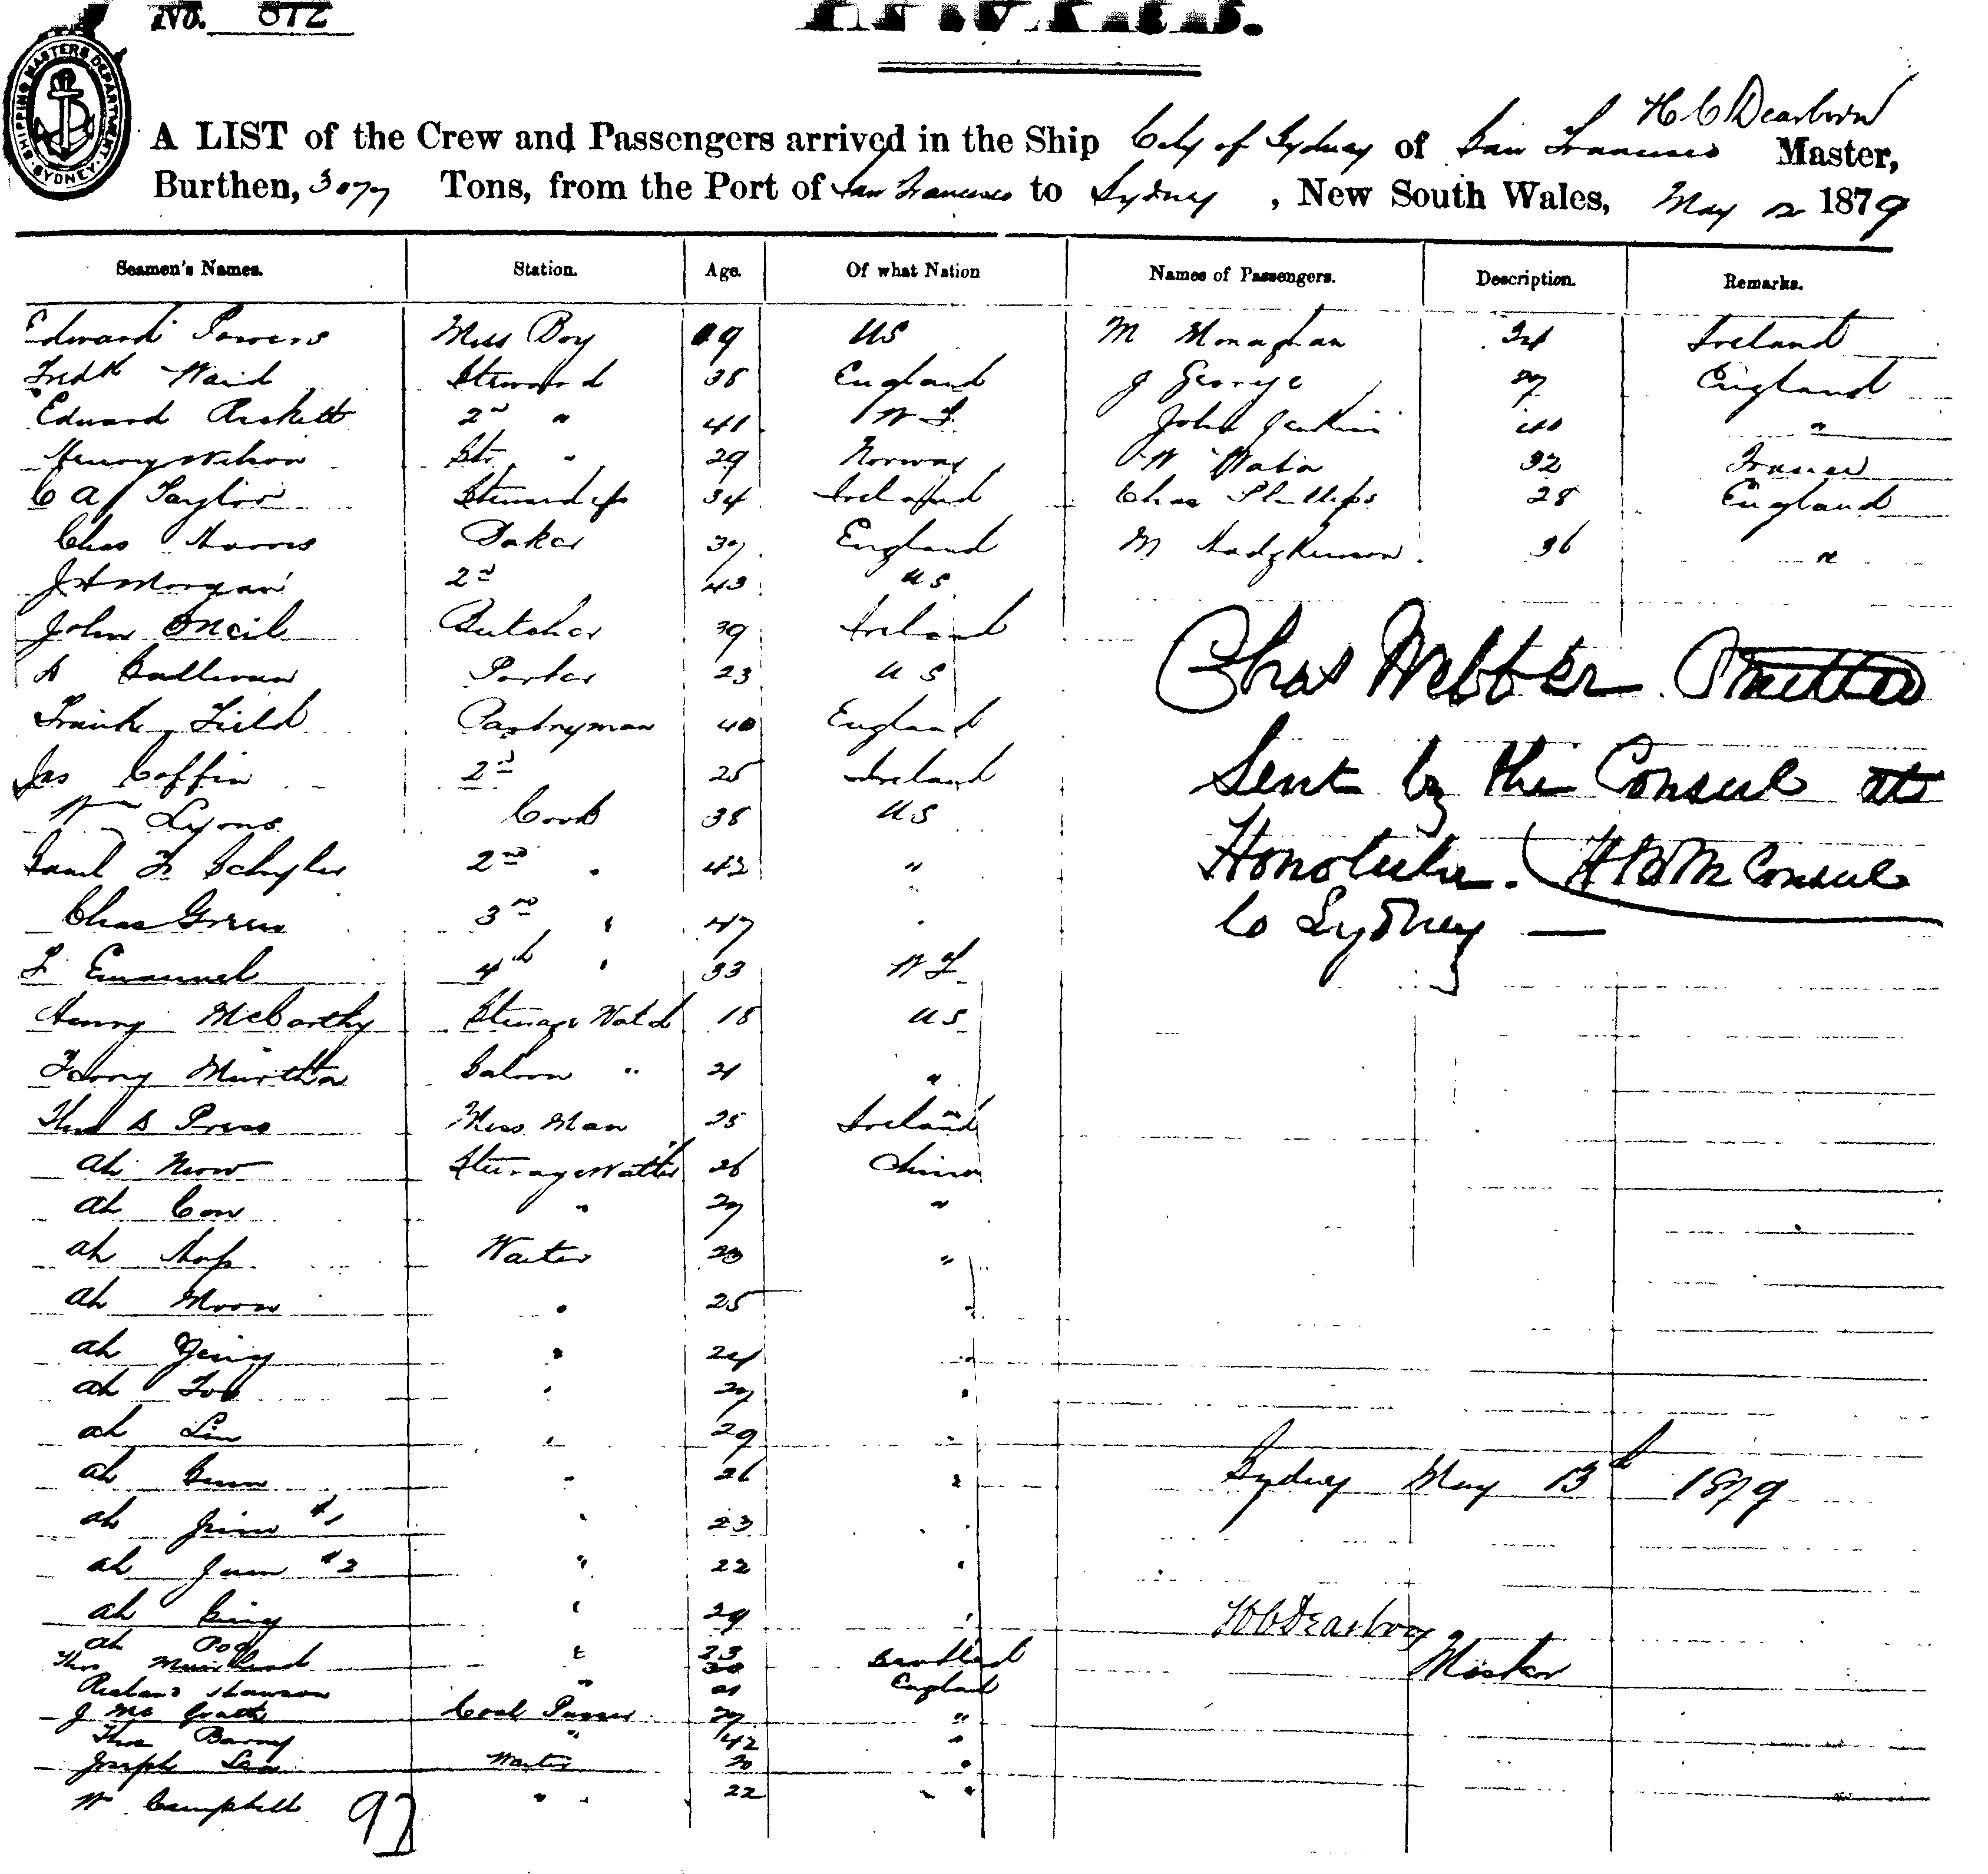 No. 072
INWARD.
SHIPPING MASTERS DEPARTMENT SYDNEY
H C Dearborn
A LIST of the Crew and Passengers arrived in the Ship City of Sydney of San Francisco Master,
Burthen, 3077 Tons, from the Port of San Francisco to Sydney, New South Wales, May 12 1879
Seamen's Names. Station. Age. Of what Nation Names of Passengers. Description. Remarks.
Edward Powers Mess Boy 19 US M Monaghan 34 Ireland
Fredk Waid Steward 38 England J George 27 England
Edward Rickett 2nd " 41 W I John Jenkins 40 "
Henry Wilson Str " 29 Norway W 32 France
C A Taylor Stewardess 34 Ireland Chas Phillips 28 England
Chas Harris Baker 37 England M Hadgkinson 36 "
J H Morgan 2nd 43 US
John ONeil Butcher 39 Ireland
A Sullivan Porter 23 US
Frank Field Pantryman 40 England
Jas Coffin 2nd 25 Ireland
Wm Lyons Cook 38 US
Saml F Schuyler 2nd " 42 "
Chas Green 3rd " 47 "
F Emanuel 4th " 33 W I
Henry McCarthy Steerage Watch 18 US
Murtha Saloon " 21 "
Thos S Press Mess Man 25 Ireland
Ah Now Steerage Waiter 26 China
Ah Con " 27 "
Ah Hop Waiter 20 "
Ah Moon " 25 "
Ah Ying " 24 "
Ah Foo " 27 "
Ah Lin " 29 "
Ah Sum " 26 "
Ah Jim #1 " 23 "
Ah Jum #2 " 22 "
Ah Sing " 29 "
Ah Poy " 23
Thos Muirhead " 30 Scotland
Richard Hawson " 21 England
J McGrath Coal Passer 27 "
Thos Barny " 42 "
Joseph Waiter 20 "
W Campbell " 22 "
97
Chas Webber
Sent by the Consul at
Honolulu. H B M Consul
to Sydney —
Sydney May 13th 1879
H C Dearborn
Master